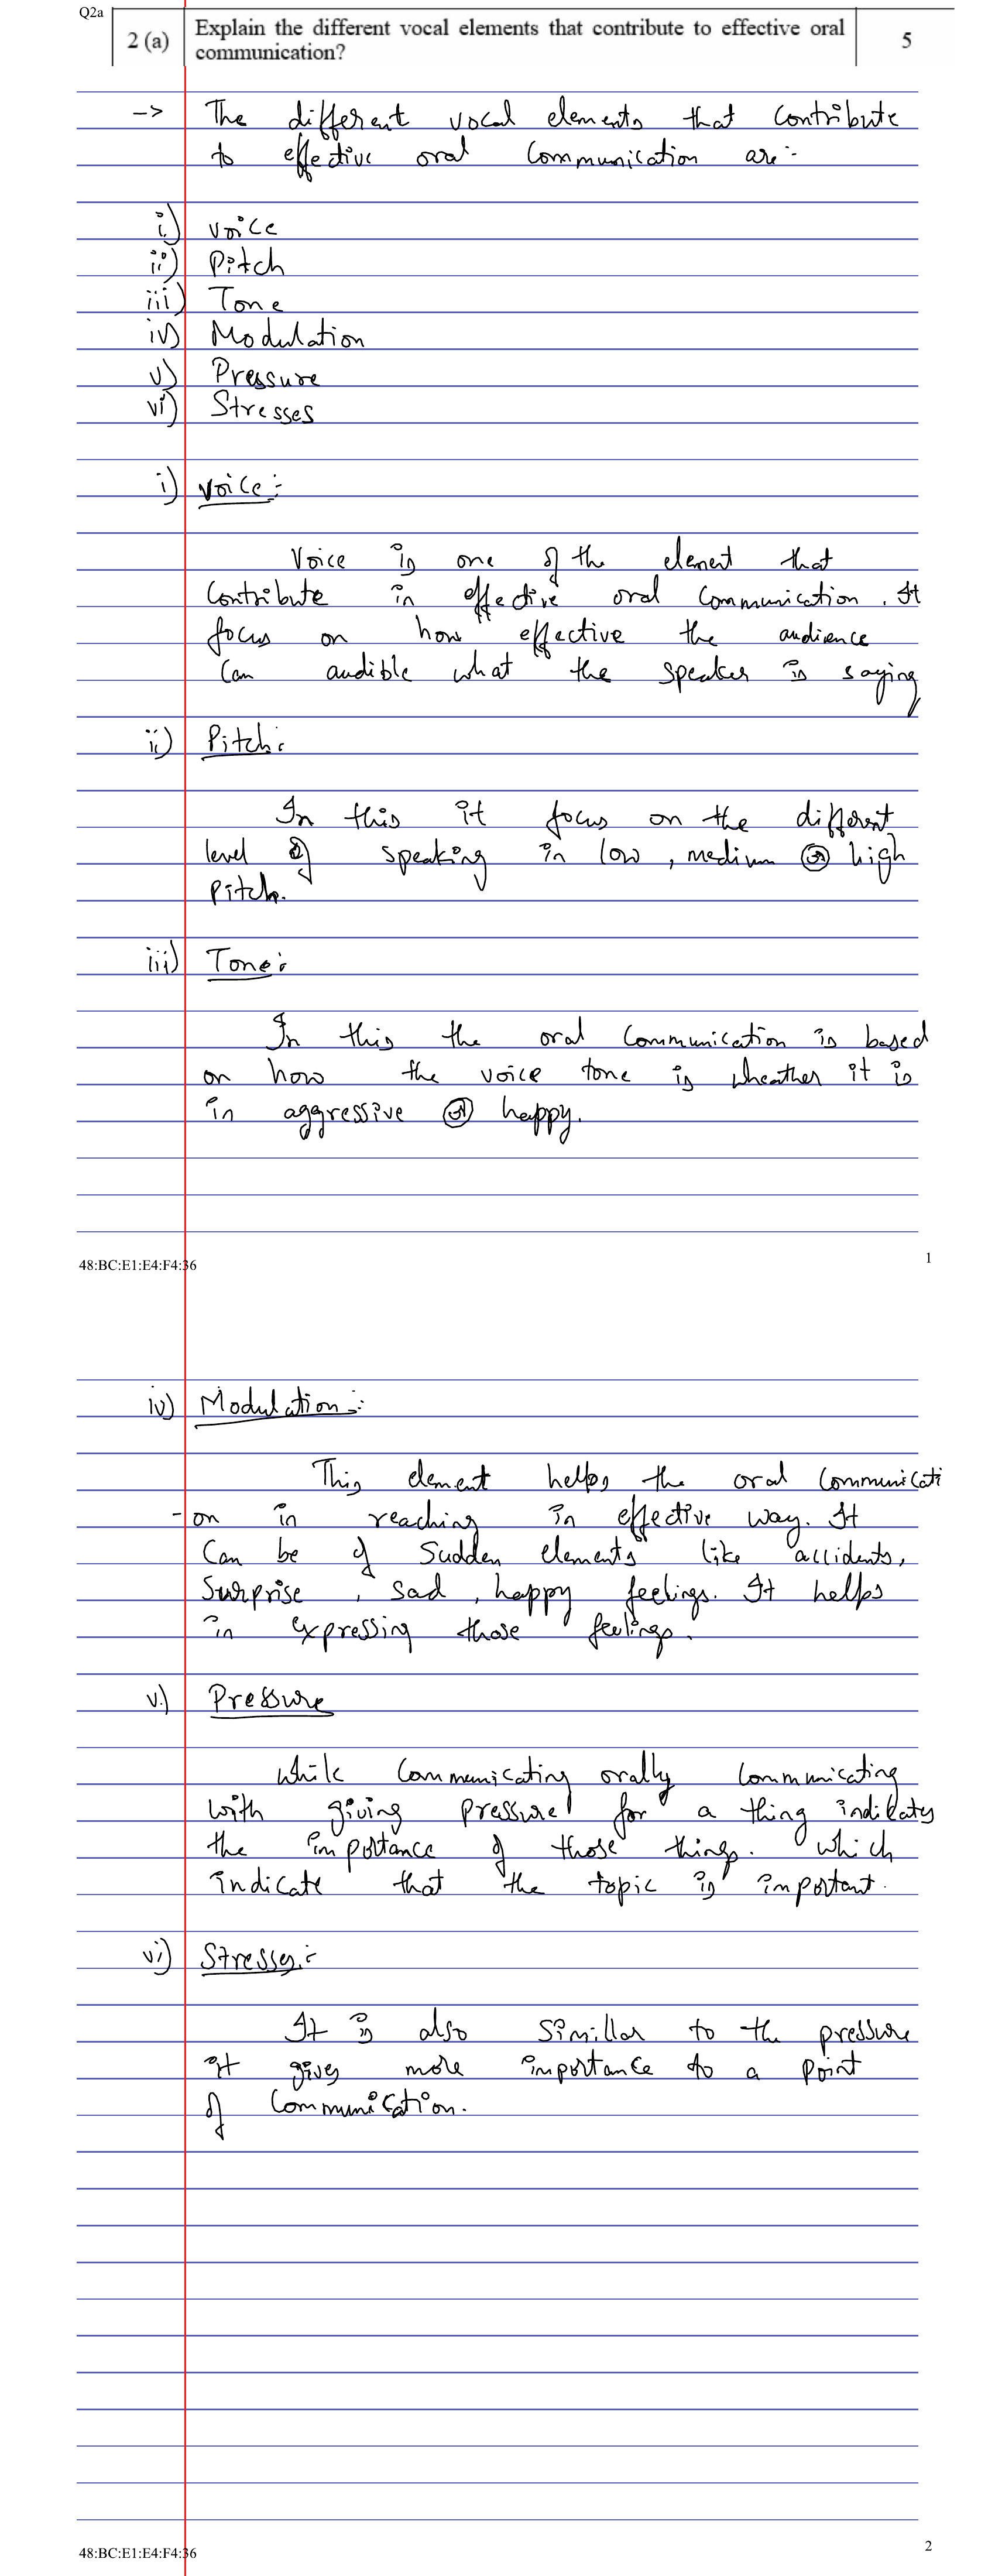 Q2a
2 (a) Explain the different vocal elements that contribute to effective oral 5
communication?
-> The different vocal elements that contribute
to effective oral communication are :-
i) Voice
ii) Pitch
iii) Tone
iv) Modulation
v) Pressure
vi) Stresses
i) Voice :-
Voice is one of the element that
contribute in effective oral communication. It
focus on how effective the audience
can audible what the speaker is saying
ii) Pitch :-
In this it focus on the different
level of speaking in low, medium or high
pitch.
iii) Tone :-
In this the oral communication is based
on how the voice tone is wheather it is
in aggressive or happy.
48:BC:E1:E4:F4:36 1
iv) Modulation :-
This element helps the oral communicati
-on in reaching in effective way. It
can be of sudden elements like accidents,
surprise, sad, happy feelings. It helps
in expressing those feelings.
v) Pressure
While communicating orally communicating
with giving pressure for a thing indicates
the importance of those things. Which
indicate that the topic is important.
vi) Stresses :-
It is also simillar to the pressure
it gives more importance to a point
of communication.
48:BC:E1:E4:F4:36 2